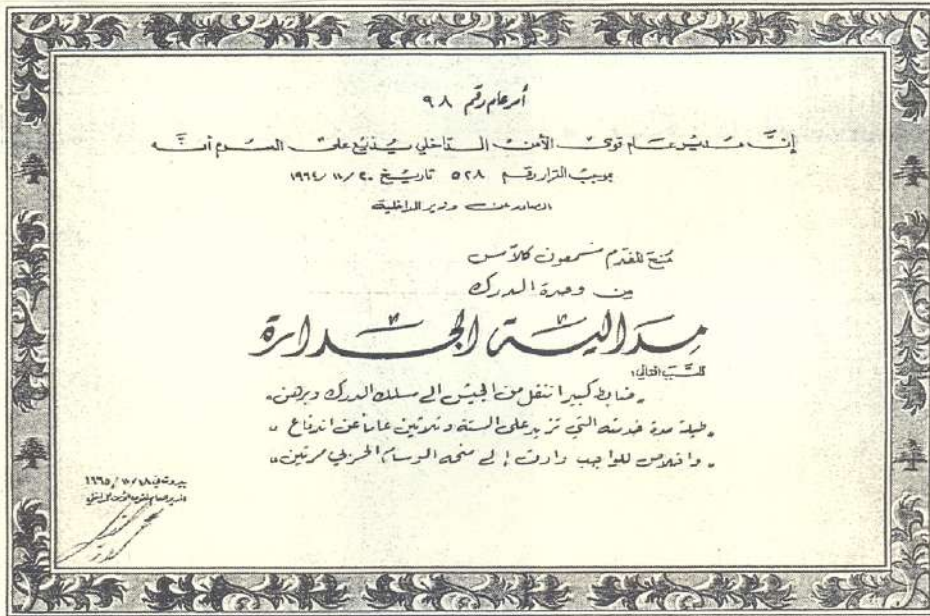 أمر عام رقم ٩٨
إنَّ مدير عام قوى الأمن الداخلي يذيع على العموم أنه
بموجب القرار رقم ٥٢٨ تاريخ ٢٠/١١/١٩٦٤
الصادر عن وزير الداخلية
مُنح المقدم شمعون كلاّس
من وحدة الدرك
مدالية الجدارة
للسبب التالي:
"ضابط كبير انتقل من الجيش الى سلك الدرك وبرهن"
"طيلة مدة خدمته التي تزيد على الستة وثلاثين عاما عن اندفاع"
"واخلاص للواجب وادت إلى منحه الوسام الحربي مرتين"
بيروت في ١٨/١٠/١٩٦٥